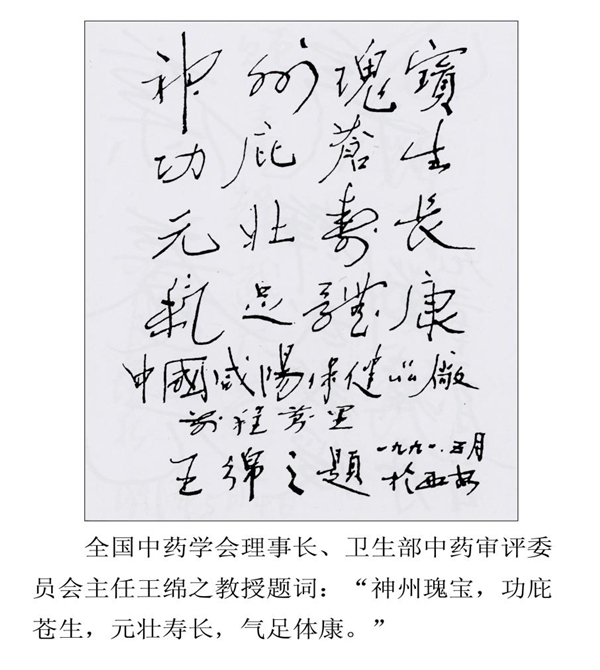 神州瑰寶
功庇蒼生
元壯壽長
氣足體康
中國咸陽保健品廠
前程萬里
王绵之題
一九九一.五月
於西安
全国中药学会理事长、卫生部中药审评委
员会主任王绵之教授题词：“神州瑰宝，功庇
苍生，元壮寿长，气足体康。”